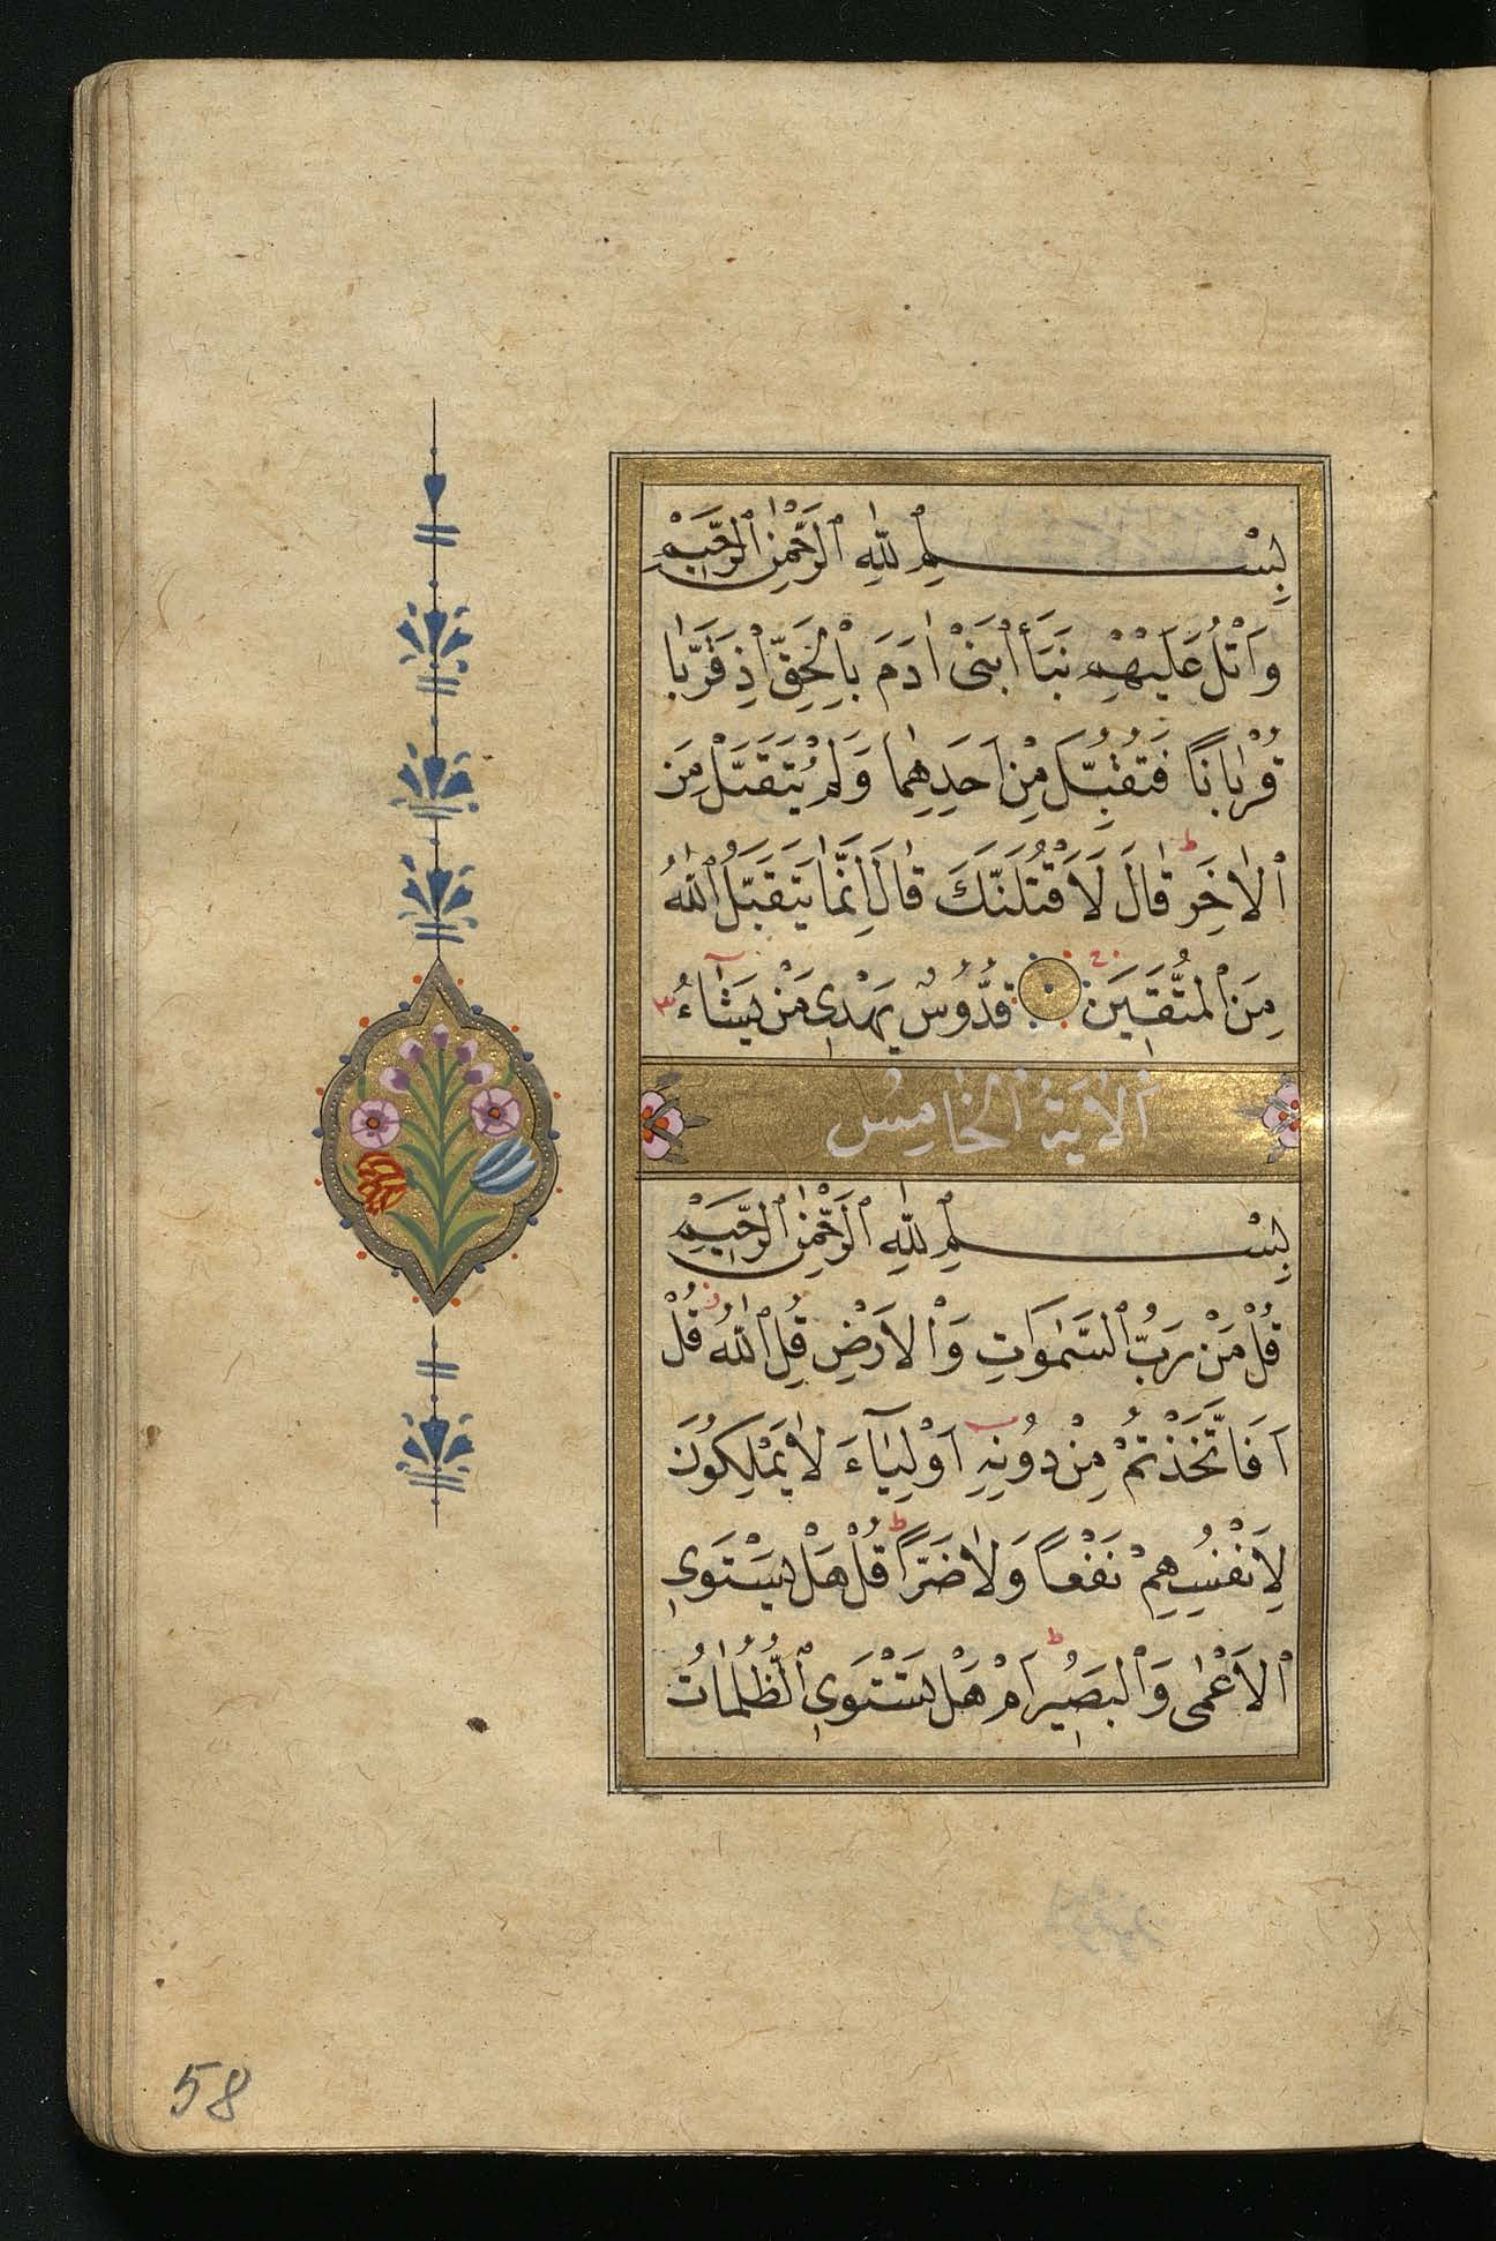 بِسْمِ ٱللّٰهِ ٱلرَّحْمٰنِ ٱلرَّحِيمِ
وَاتْلُ عَلَيْهِمْ نَبَأَ ٱبْنَىْ اٰدَمَ بِالْحَقِّ اِذْ قَرَّبَا
قُرْبَانًا فَتُقُبِّلَ مِنْ اَحَدِهِمَا وَلَمْ يُتَقَبَّلْ مِنَ
ٱلْاٰخَرِ ط قَالَ لَاَقْتُلَنَّكَ قَالَ اِنَّمَا يَتَقَبَّلُ ٱللّٰهُ
مِنَ ٱلْمُتَّقِينَ قُدُّوسٌ يَهْدِى مَنْ يَشَٓاءُ ٣
اَلْاٰيَةُ ٱلْخَامِسُ
بِسْمِ ٱللّٰهِ ٱلرَّحْمٰنِ ٱلرَّحِيمِ
قُلْ مَنْ رَبُّ ٱلسَّمٰوَاتِ وَٱلْاَرْضِ قُلِ ٱللّٰهُ قُلْ
اَفَاتَّخَذْتُمْ مِنْ دُونِهِ اَوْلِيَٓاءَ لَا يَمْلِكُونَ
لِاَنْفُسِهِمْ نَفْعًا وَلَا ضَرًّا ط قُلْ هَلْ يَسْتَوِى
ٱلْاَعْمٰى وَٱلْبَصِيرُ ط اَمْ هَلْ تَسْتَوِى ٱلظُّلُمَاتُ
58